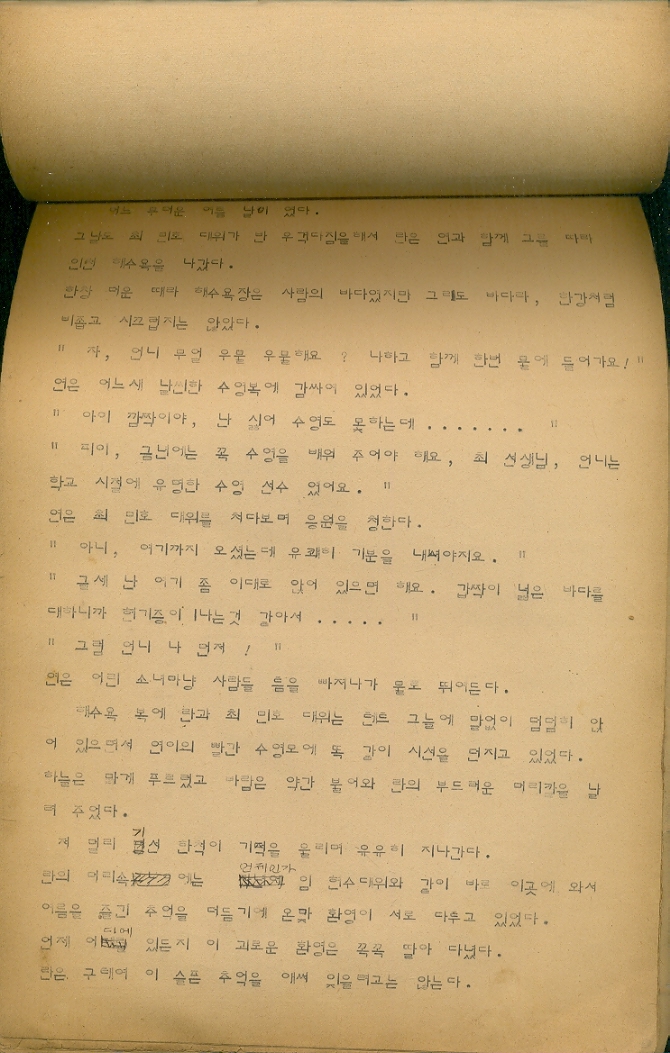 어느 무더운 여름 날이 었다.
그날도 최 민호 대위가 한 우격다짐을해서 란은 연과 함께 그를 따라
인천 해수욕을 나갔다.
한창 더운 때라 해수욕장은 사람의 바다였지만 그래도 바다라, 한강처럼
비좁고 시끄럽지는 않았다.
" 자, 언니 무얼 우물 우물해요 ? 나하고 함께 한번 물에 들어가요! "
연은 어느새 날씬한 수영복에 감싸여 있었다.
" 아이 깜짝이야, 난 싫어 수영도 못하는데 ....... "
" 피이, 금년에는 꼭 수영을 배워 주어야 해요, 최 선생님, 언니는
학교 시절에 유명한 수영 선수 였어요. "
연은 최 민호 대위를 쳐다보며 응원을 청한다.
" 아니, 여기까지 오셨는데 유쾌히 기분을 내셔야지요. "
" 글세 난 여기 좀 이대로 앉어 있으면 해요. 갑짝이 넓은 바다를
대하니까 현기증이 나는것 같아서 ..... "
" 그럼 언니 나 먼저 ! "
연은 어린 소녀마냥 사람들 틈을 빠져나가 물로 뛰여든다.
해수욕 복에 란과 최 민호 대위는 텐트 그늘에 말없이 덤덤히 앉
어 있으면서 연이의 빨간 수영모에 똑 같이 시선을 던지고 있었다.
하늘은 맑게 푸르렀고 바람은 약간 불어와 란의 부드러운 머리깔을 날
려 주었다.
저 멀리 기선 한척이 기적을 울리며 유유히 지나간다.
란의 머리속에는 언제인가 임 현수대위와 같이 바로 이곳에 와서
여름을 즐긴 추억을 더듬기에 온갖 환영이 서로 다투고 있었다.
언제 어디에 있든지 이 괴로운 환영은 꼭꼭 딸아 다녔다.
란은 구태여 이 슬픈 추억을 애써 잊을려고는 않는다.